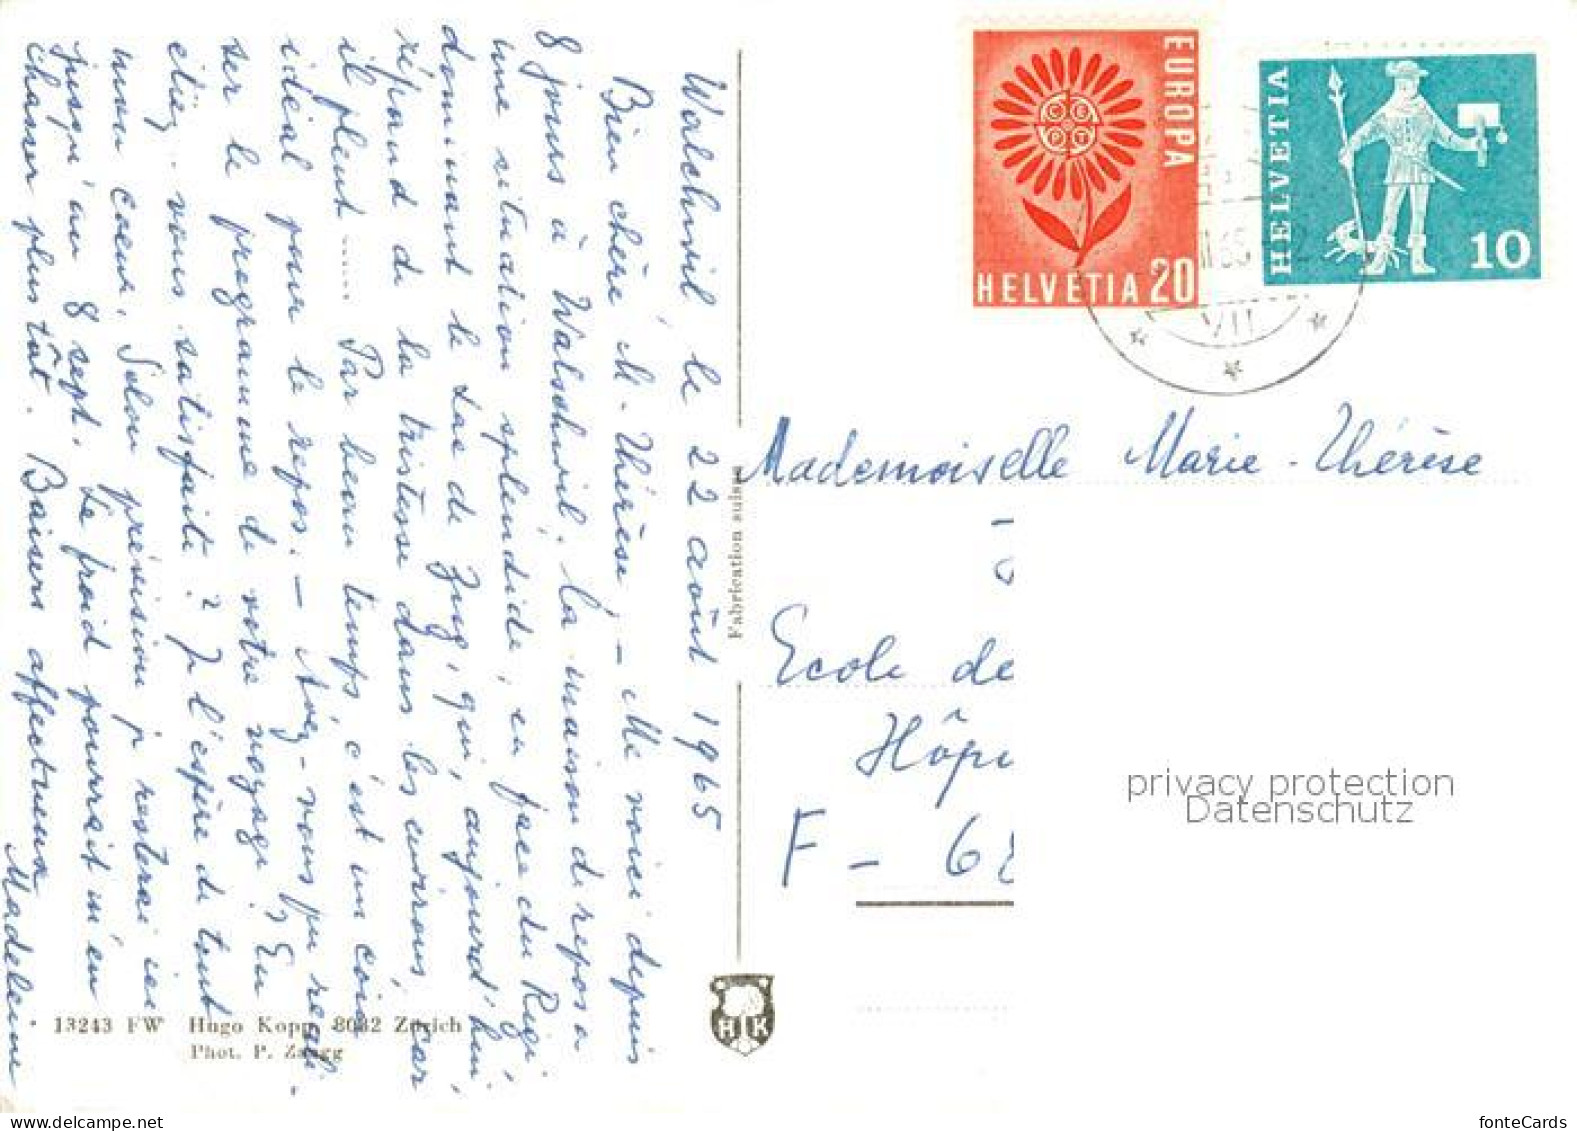 Walchwil le 22 août 1965
Bien chère M.-Thérèse, – Me voici depuis
8 jours à Walchwil. la maison de repos a
une situation splendide, en face du Rigi,
dominant le Lac de Zug, qui, aujourd'hui,
répand de la tristesse dans les environs, car
il pleut ...... Par beau temps, c'est un coin
idéal pour le repos. – Avez-vous pu réali-
ser le programme de votre voyage? En
êtiez-vous satisfaite? Je l'espère de tout
mon coeur. Selon prévision je resterai ici
jusqu'au 8 sept. Le froid pourrait m'en
chasser plus tôt. Baisers affectueux
Madeleine
13243 FW Hugo Kopp, 8032 Zürich
Phot. P. Zaugg
Fabrication suisse
H K
EUROPA
CEPT
HELVETIA 20
HELVETIA
10
VII
Mademoiselle Marie-Thérèse
Ecole de
Hôpi
F - 68
privacy protection
Datenschutz
www.delcampe.net
fonteCards